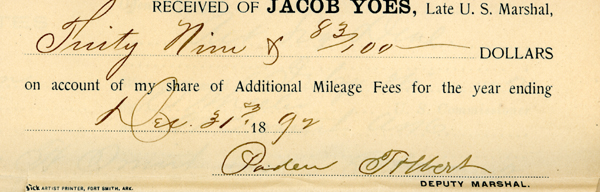 RECEIVED OF JACOB YOES, Late U. S. Marshal,
Thirty Nine & 83/100 DOLLARS
on account of my share of Additional Mileage Fees for the year ending
Dec. 31st, 1892
Paden Tolbert
DEPUTY MARSHAL.
ARTIST PRINTER, FORT SMITH, ARK.